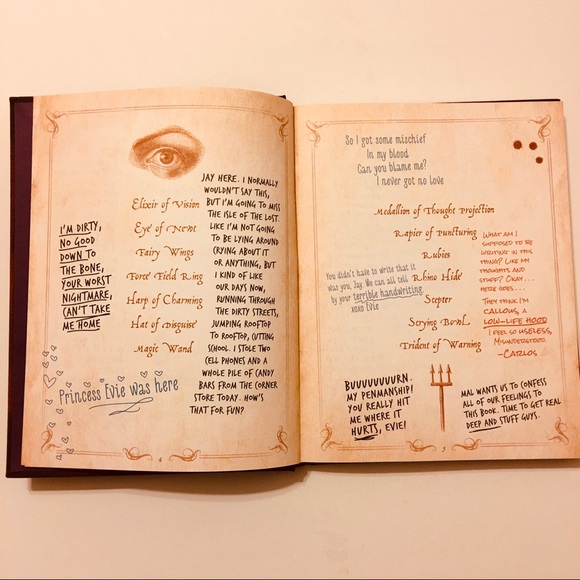 I'M DIRTY,
NO GOOD
DOWN TO
THE BONE,
YOUR WORST
NIGHTMARE,
CAN'T TAKE
ME HOME
Elixir of Vision
Eye of Newt
Fairy Wings
Force Field Ring
Harp of Charming
Hat of Disguise
Magic Wand
JAY HERE. I NORMALLY
WOULDN'T SAY THIS,
BUT I'M GOING TO MISS
THE ISLE OF THE LOST.
LIKE I'M NOT GOING
TO BE LYING AROUND
CRYING ABOUT IT
OR ANYTHING, BUT
I KIND OF LIKE
OUR DAYS NOW,
RUNNING THROUGH
THE DIRTY STREETS,
JUMPING ROOFTOP
TO ROOFTOP, CUTTING
SCHOOL. I STOLE TWO
CELL PHONES AND A
WHOLE PILE OF CANDY
BARS FROM THE CORNER
STORE TODAY. HOW'S
THAT FOR FUN?
Princess Evie was here
4
So I got some mischief
In my blood
Can you blame me?
I never got no love
Medallion of Thought Projection
Rapier of Puncturing
Rubies
Rhino Hide
Scepter
Scrying Bowl
Trident of Warning
You didn't have to write that it
was you, Jay. We can all tell
by your terrible handwriting.
xoxo Evie
WHAT AM I
SUPPOSED TO BE
WRITING IN THIS
THING? LIKE MY
THOUGHTS AND
STUFF? OKAY...
HERE GOES...
THEY THINK I'M
CALLOUS, A
LOW-LIFE HOOD
I FEEL SO USELESS,
MISUNDERSTOOD.
-CARLOS
BUUUUUUUURN.
MY PENMANSHIP!
YOU REALLY HIT
ME WHERE IT
HURTS, EVIE!
MAL WANTS US TO CONFESS
ALL OF OUR FEELINGS TO
THIS BOOK. TIME TO GET REAL
DEEP AND STUFF GUYS.
5